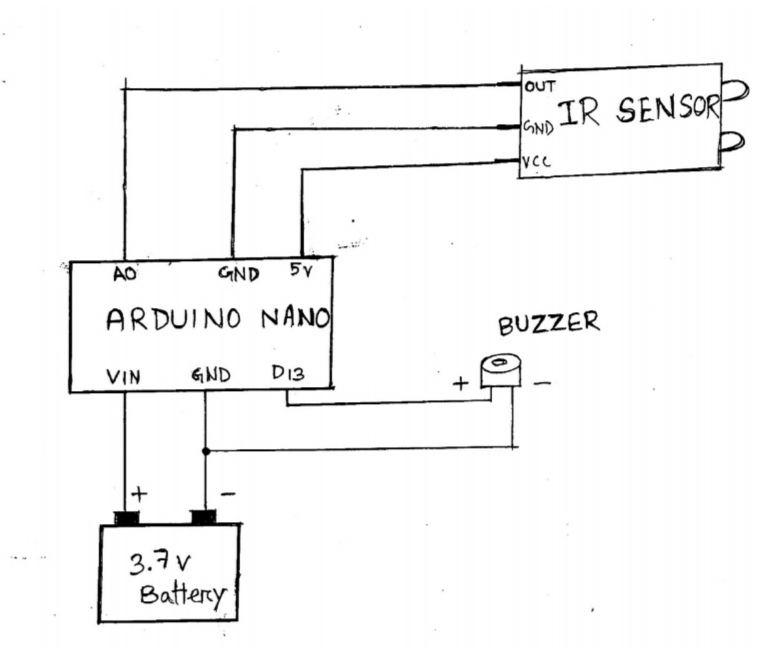 OUT
IR SENSOR
GND
VCC
A0 GND 5V
ARDUINO NANO
VIN GND D13
BUZZER
+ -
+ -
3.7V
Battery